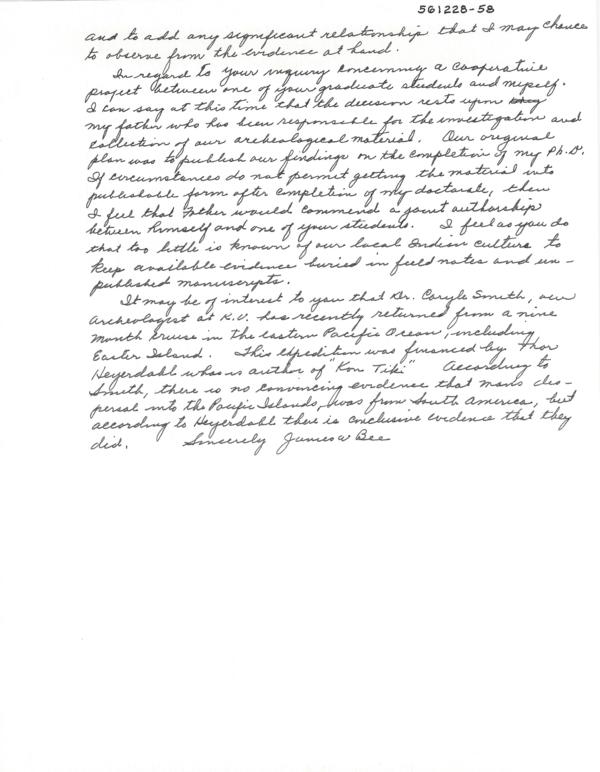 561228-58
and to add any significant relationship that I may chance
to observe from the evidence at hand.
In regard to your inquiry concerning a cooperative
project between one of your graduate students and myself.
I can say at this time that the decision rests upon
my father who has been responsible for the investigation and
collection of our archeological material. Our original
plan was to publish our findings on the completion of my Ph.D.
If circumstances do not permit getting the material into
publishable form after completion of my doctorate, then
I feel that Father would commend a joint authorship
between himself and one of your students. I feel as you do
that too little is known of our local Indian culture to
keep available evidence buried in field notes and un-
published manuscripts.
It may be of interest to you that Dr. Caryle Smith, our
Archeologist at K.U. has recently returned from a nine
month cruise in the eastern Pacific Ocean, including
Easter Island. This expedition was financed by Thor
Heyerdahl who is author of "Kon Tiki" According to
Smith, there is no convincing evidence that mans dis-
persal into the Pacific Islands, was from South America, but
according to Heyerdahl there is conclusive evidence that they
did. Sincerely James W Bee